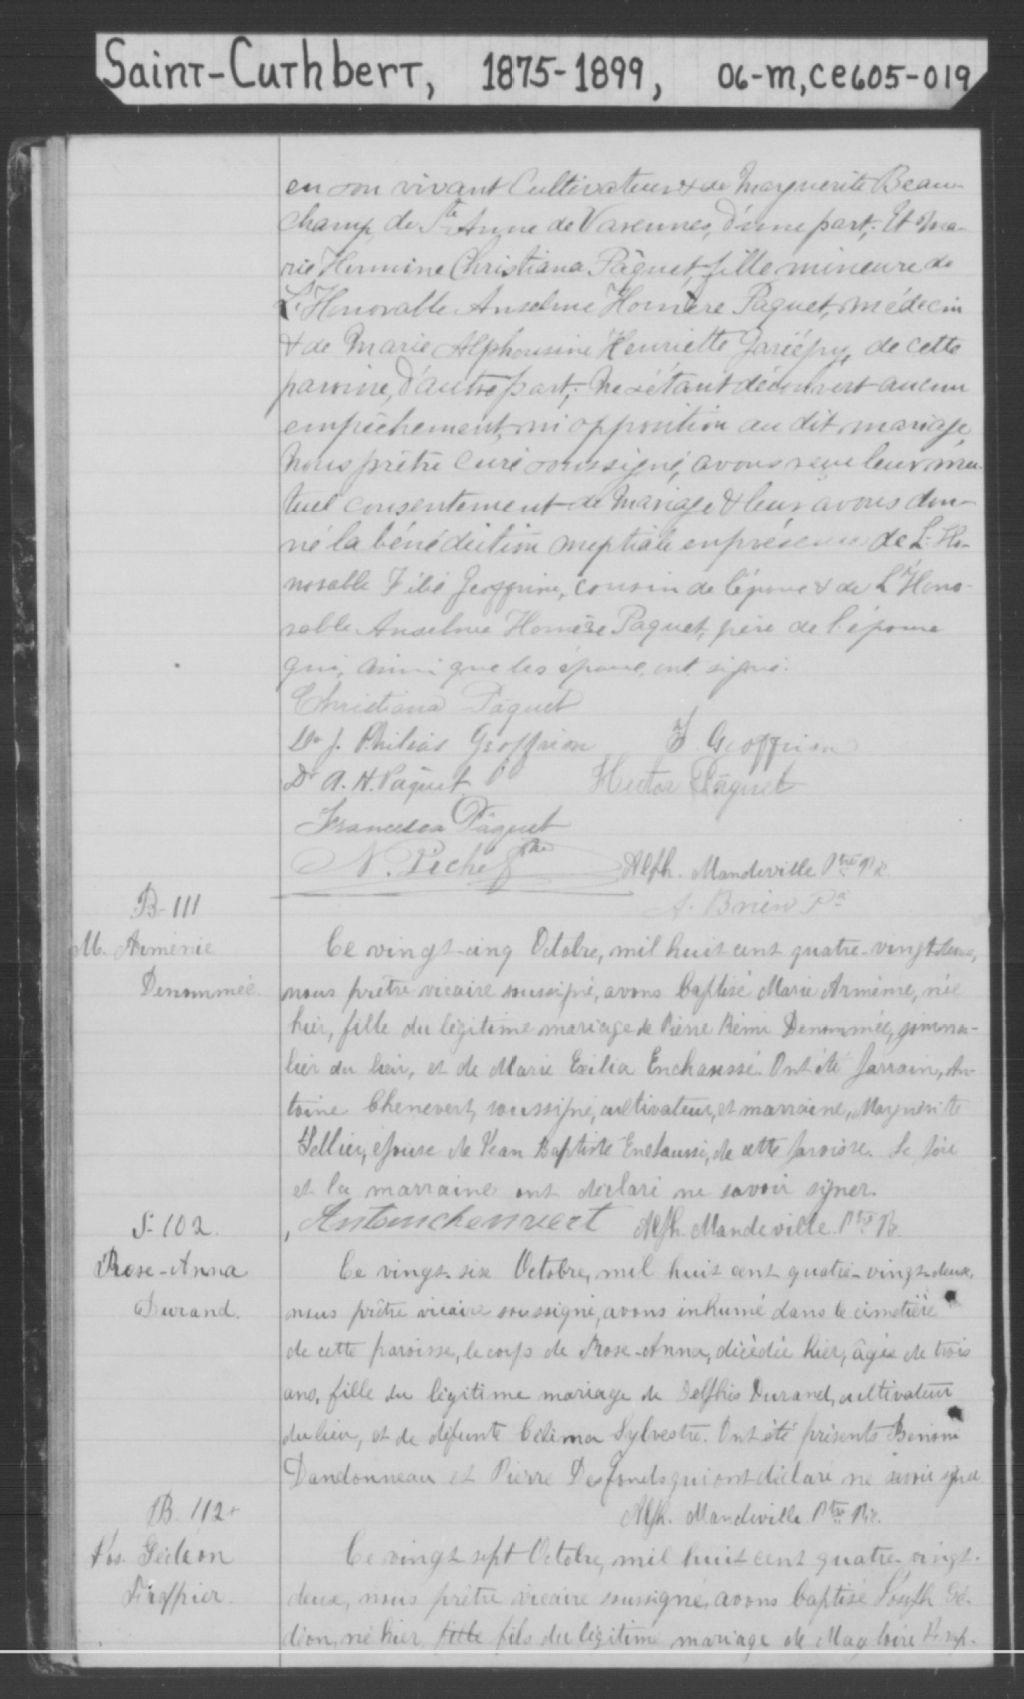 Saint-Cuthbert, 1875-1899, 06-M, CE605-019
en son vivant Cultivateur & de Marguerite Beau-
champ, de Ste Anne de Varennes, d'une part; Et Ma-
rie Hermine Christiana Pâquet, fille mineure de
L'Honorable Anselme Homère Paquet, médecin
& de Marie Alphonsine Henriette Gariépy, de cette
paroisse, d'autre part; ne s'étant découvert aucun
empêchement, ni opposition au dit mariage,
Nous prêtre curé soussigné, avons reçu leur mu-
tuel consentement de mariage & leur avons don-
né la bénédiction nuptiale en présence de L'Ho-
norable Félix Geoffrion, cousin de l'époux & de L'Hono-
rable Anselme Homère Paquet, père de l'épouse
qui, ainsi que les époux, ont signé.
Christiana Pâquet
Dr J. Philias Geoffrion F. Geoffrion
Dr A. H. Pâquet Hector Pâquet
Francesca Pâquet
N. Piché Ptre Alph. Mandeville Ptre Vic.
A. Brien Pr
B-111
M. Arménie
Denommée.
Ce vingt-cinq Octobre, mil huit cent quatre-vingt-deux,
nous prêtre vicaire soussigné, avons baptisé Marie Arménie, née
hier, fille du légitime mariage de Pierre Rémi Denommée, journa-
lier du lieu, et de Marie Exilia Enchaussé. Ont été parrain, An-
toine Chenevert, soussigné, cultivateur, et marraine, Marguerite
Tellier, épouse de Jean Baptiste Enchaussé, de cette paroisse. Le père
et la marraine ont déclaré ne savoir signer.
Antoinchenvert Alph. Mandeville Ptre Vic.
S-102.
Rose-Anna
Durand.
Ce vingt-six Octobre, mil huit cent quatre-vingt-deux,
nous prêtre vicaire soussigné, avons inhumé dans le cimetière
de cette paroisse, le corps de Rose-Anna, décédée hier, âgée de trois
ans, fille du légitime mariage de Delphis Durand, cultivateur
du lieu, et de défunte Célima Sylvestre. Ont été présents Benoni
Dandonneau et Pierre Desfonds qui ont déclaré ne savoir signer
Alph. Mandeville Ptre Vic.
B. 112
Jos. Gédéon
Ce vingt sept Octobre, mil huit cent quatre-vingt-
deux, nous prêtre vicaire soussigné, avons baptisé Joseph Gé-
déon, né hier, fille fils du légitime mariage de Magloire